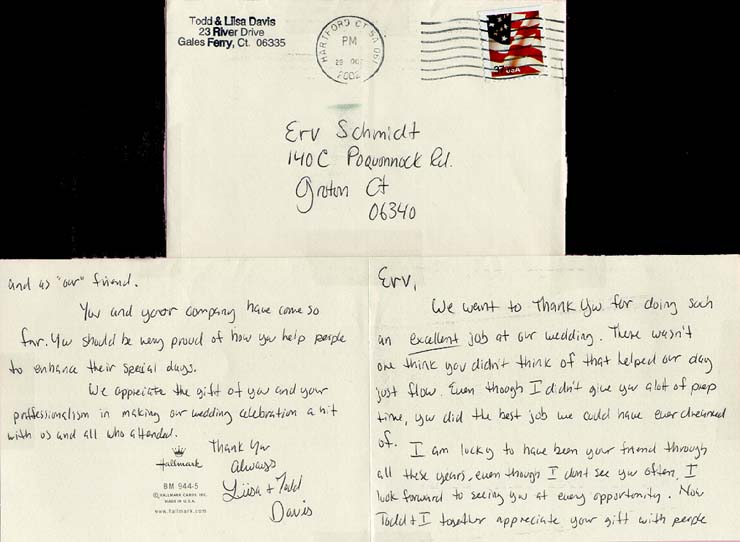 Todd & Liisa Davis
23 River Drive
Gales Ferry, Ct. 06335
HARTFORD CT
PM
2002
37 USA
Erv Schmidt
140C Poquonnock Rd.
Groton Ct
06340
Erv,
We want to Thank You for doing such
an excellent job at our wedding. There wasn't
one think you didn't think of that helped our day
just flow. Even though I didn't give you alot of prep
time, you did the best job we could have ever dreamed
of. I am lucky to have been your friend through
all these years, even though I dont see you often, I
look forward to seeing you at every opportunity. Now
Todd + I together appreciate your gift with people
and as "our" friend.
You and your company have come so
far. You should be very proud of how you help people
to enhance their special days.
We appreciate the gift of you and your
proffessionalism in making our wedding celebration a hit
with us and all who attended.
Thank You
Always
Liisa + Todd
Davis
Hallmark
BM 944-5
© HALLMARK CARDS, INC.
MADE IN U.S.A.
www.hallmark.com